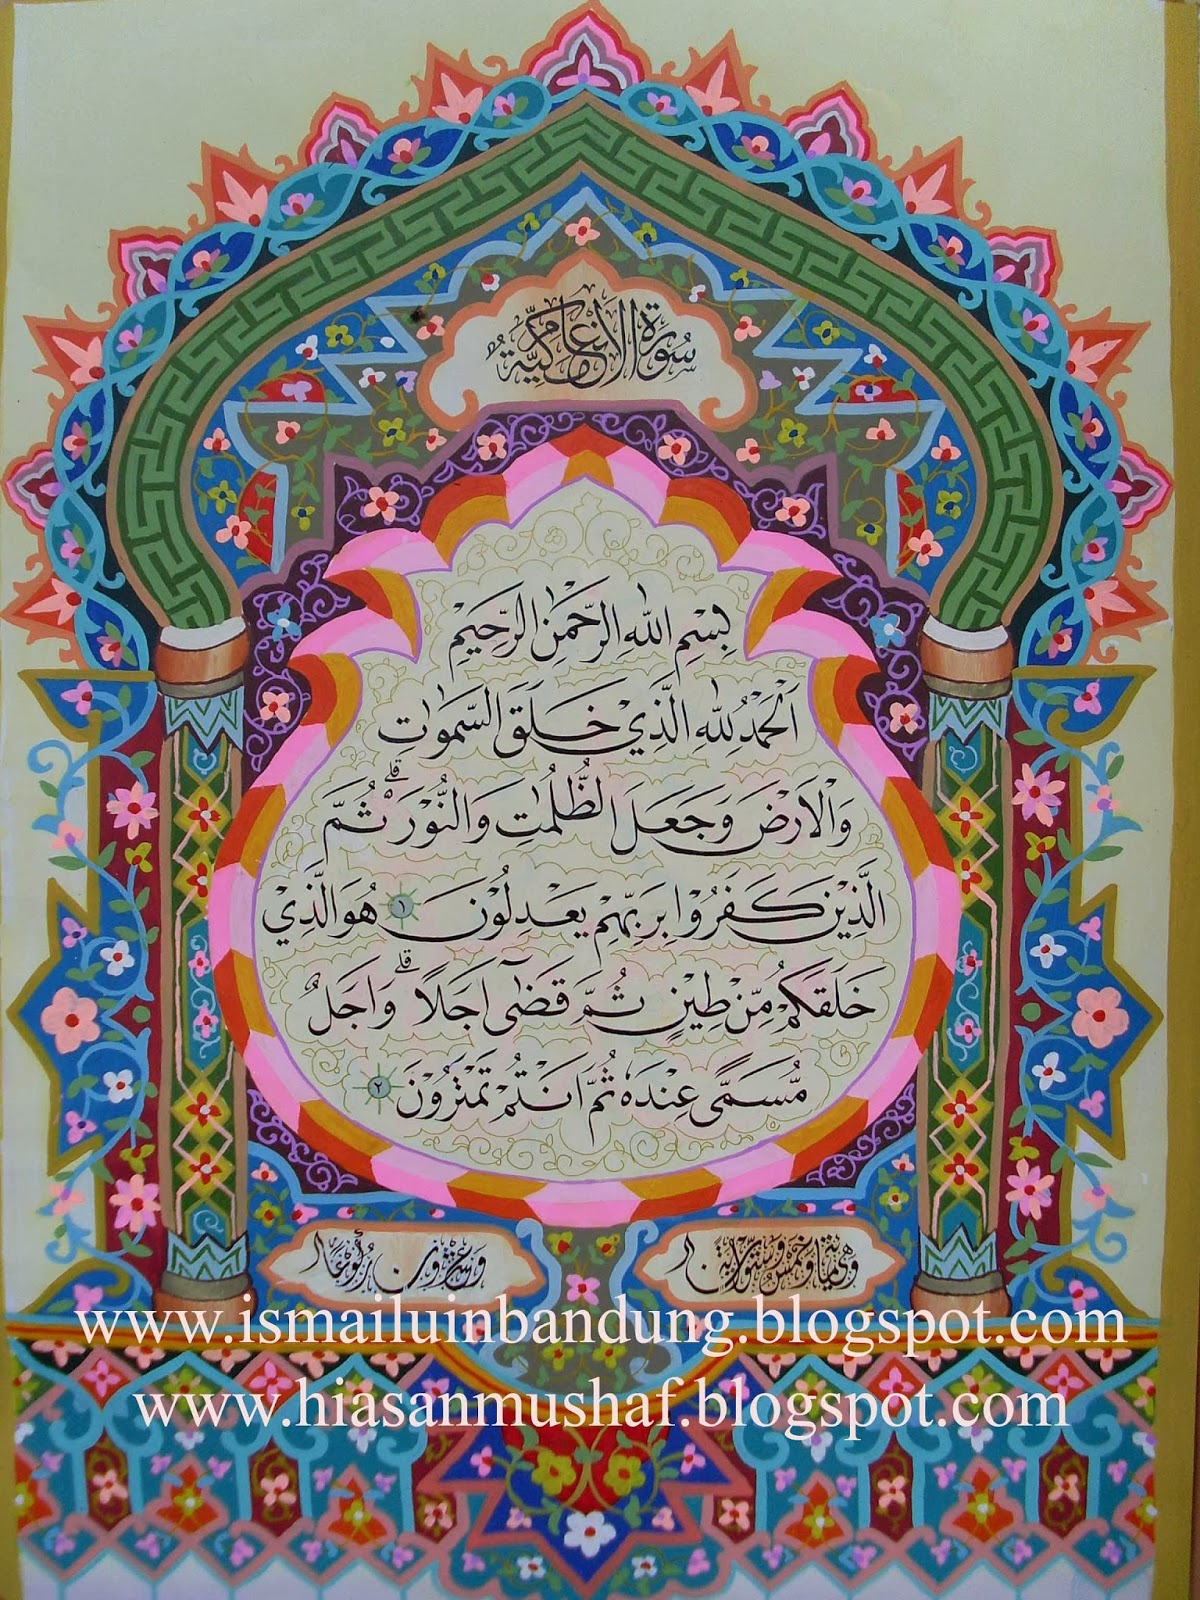 سُورَةُ الْأَنْعَامِ مَكِّيَّةٌ
بِسْمِ اللهِ الرَّحْمٰنِ الرَّحِيْمِ
اَلْحَمْدُ لِلّٰهِ الَّذِيْ خَلَقَ السَّمٰوٰتِ
وَالْاَرْضَ وَجَعَلَ الظُّلُمٰتِ وَالنُّوْرَ ۗ ثُمَّ
الَّذِيْنَ كَفَرُوْا بِرَبِّهِمْ يَعْدِلُوْنَ ١ هُوَ الَّذِيْ
خَلَقَكُمْ مِّنْ طِيْنٍ ثُمَّ قَضٰٓى اَجَلًا ۗ وَاَجَلٌ
مُّسَمًّى عِنْدَهٗ ثُمَّ اَنْتُمْ تَمْتَرُوْنَ ٢
وَهِيَ مِائَةٌ وَخَمْسٌ وَسِتُّوْنَ اٰيَةً
وَعِشْرُوْنَ رُكُوْعًا
www.ismailuinbandung.blogspot.com
www.hiasanmushaf.blogspot.com